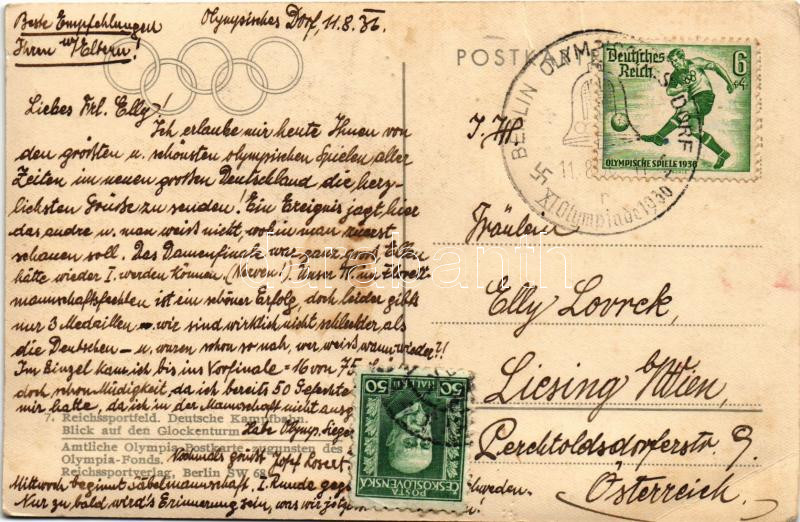 Beste Empfehlungen
Ihren w. Eltern!
Olympisches Dorf, 11.8.36.
Liebes Frl. Elly!
Ich erlaube mir heute Ihnen von
den größten u. schönsten olympischen Spielen aller
Zeiten im neuen großen Deutschland die herz-
lichsten Grüsse zu senden! Ein Ereignis jagt hier
das andre u. man weiß nicht, wo man zuerst
schauen soll. Das Damenfinale war ganz groß, Ellen
hätte wieder I. werden können (Nerven!). Unser IV. im Florett
mannschaftsfechten ist ein schöner Erfolg, doch leider gibts
nur 3 Medaillen – wir sind wirklich nicht schlechter als
die Deutschen – u. waren schon so nah, wer weiß, wann wieder?!
Im Einzel kam ich bis ins Vorfinale = 16 von 75,
doch schon Müdigkeit, da ich bereits 50 Gefechte
mir hatte, da ich in der Mannschaft nicht ausg
Habe Olymp. Sieger
Josef Losert
Mittwoch beginnt Säbelmannschaft, I. Runde geg
Schweden.
Nur zu bald wird's Erinnerung sein, was wir jetzt
7. Reichssportfeld. Deutsche Kampfbahn.
Blick auf den Glockenturm
Amtliche Olympia-Postkarte zugunsten des
Olympia-Fonds.
Reichssportverlag, Berlin SW 68
POSTKA
Deutsches
Reich
6
+4
OLYMPISCHE SPIELE 1936
BERLIN OLYMPISCHES DORF
11.8.
XI. Olympiade 1936
Fräulein
Elly Lovrek,
Liesing b/Wien,
Perchtoldsdorferstr. 9.
Österreich.
50 HALÉŘŮ 50
POŠTA
ČESKOSLOVENSKÁ
darabanth